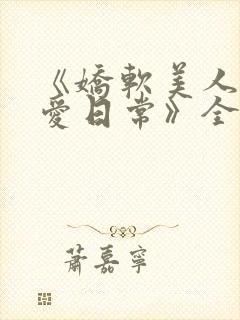 《嬌軟美人
愛日常》全
蕭嘉寧